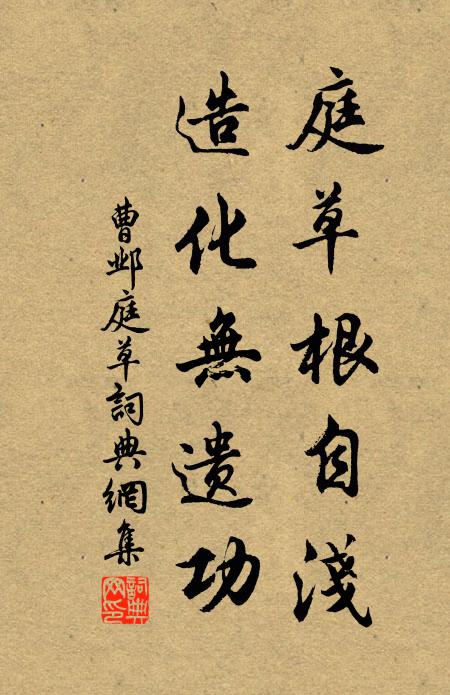 庭草根自淺
造化無遺功
曹邺庭草詞典網集
詞典网印